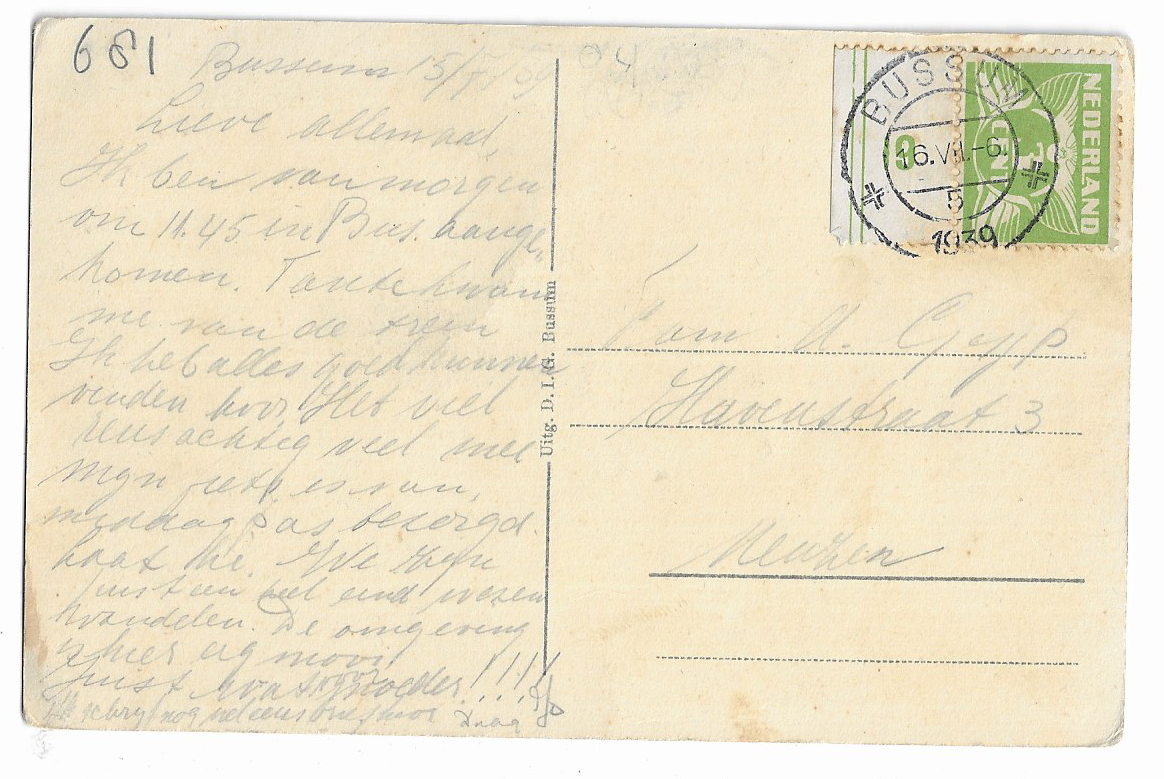 681
Bussum 15/7/'39
Lieve allemaal,
Ik ben vanmorgen
om 11.45 in Bus. aange-
komen. Tante kwam
me van de trein
Ik heb alles goed kunnen
vinden hoor! Het viel
reus achtig veel mee
Mijn fiets is van
middag pas bezorgd.
laat hè. We zijn
juist een heel eind wezen
wandelen. De omgeving
is hier erg mooi
Juist wat voor moeder!!!!
Ik schrijf nog wel eens brief hoor
Daag
Uitg. D. I. G. Bussum
NEDERLAND
CENT
BUSSUM
16.VII.-6.
5
1939
Fam. A. Gyp
Havenstraat 3